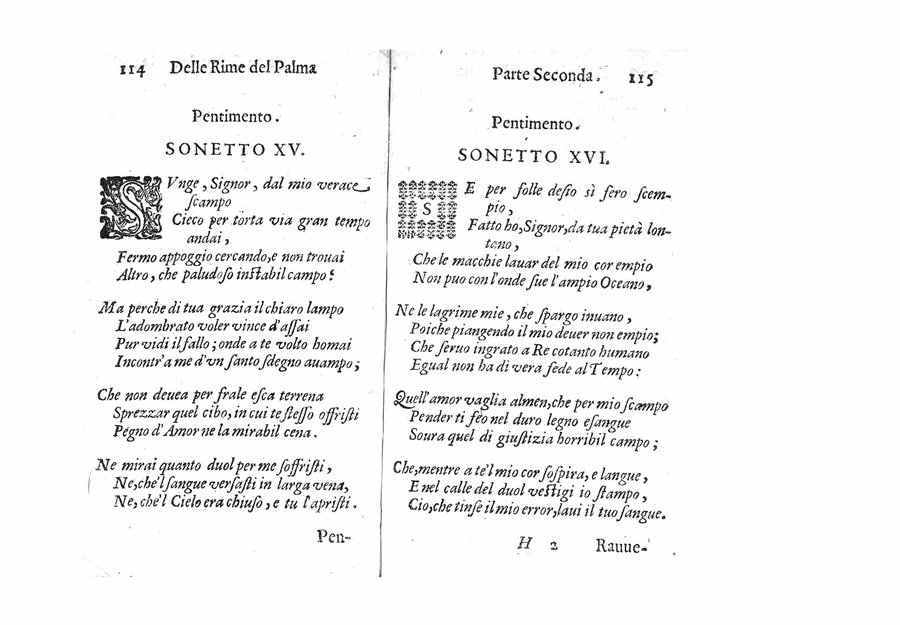 114 Delle Rime del Palma
Pentimento.
SONETTO XV.
SVnge, Signor, dal mio verace
ſcampo
Cieco per torta via gran tempo
andai,
Fermo appoggio cercando, e non trouai
Altro, che paludoſo inſtabil campo:
Ma perche di tua grazia il chiaro lampo
L'adombrato voler vince d'aſſai
Pur vidi il fallo; onde a te volto homai
Incontr'a me d'vn ſanto ſdegno auampo;
Che non deuea per frale eſca terrena
Sprezzar quel cibo, in cui te ſteſſo offriſti
Pegno d'Amor ne la mirabil cena.
Ne mirai quanto duol per me ſoffriſti,
Ne, che'l ſangue verſaſti in larga vena,
Ne, che'l Cielo era chiuſo, e tu l'apriſti.
Pen-
Parte Seconda. 115
Pentimento.
SONETTO XVI.
SE per folle deſio sì fero ſcem-
pio,
Fatto ho, Signor, da tua pietà lon-
tano,
Che le macchie lauar del mio cor empio
Non puo con l'onde ſue l'ampio Oceano,
Ne le lagrime mie, che ſpargo inuano,
Poiche piangendo il mio deuer non empio;
Che ſeruo ingrato a Re cotanto humano
Egual non ha di vera fede al Tempo:
Quell'amor vaglia almen, che per mio ſcampo
Pender ti féo nel duro legno eſangue
Soura quel di giuſtizia horribil campo;
Che, mentre a te'l mio cor ſoſpira, e langue,
E nel calle del duol veſtigi io ſtampo,
Cio, che tinſe il mio error, laui il tuo ſangue.
H 2 Rauue-